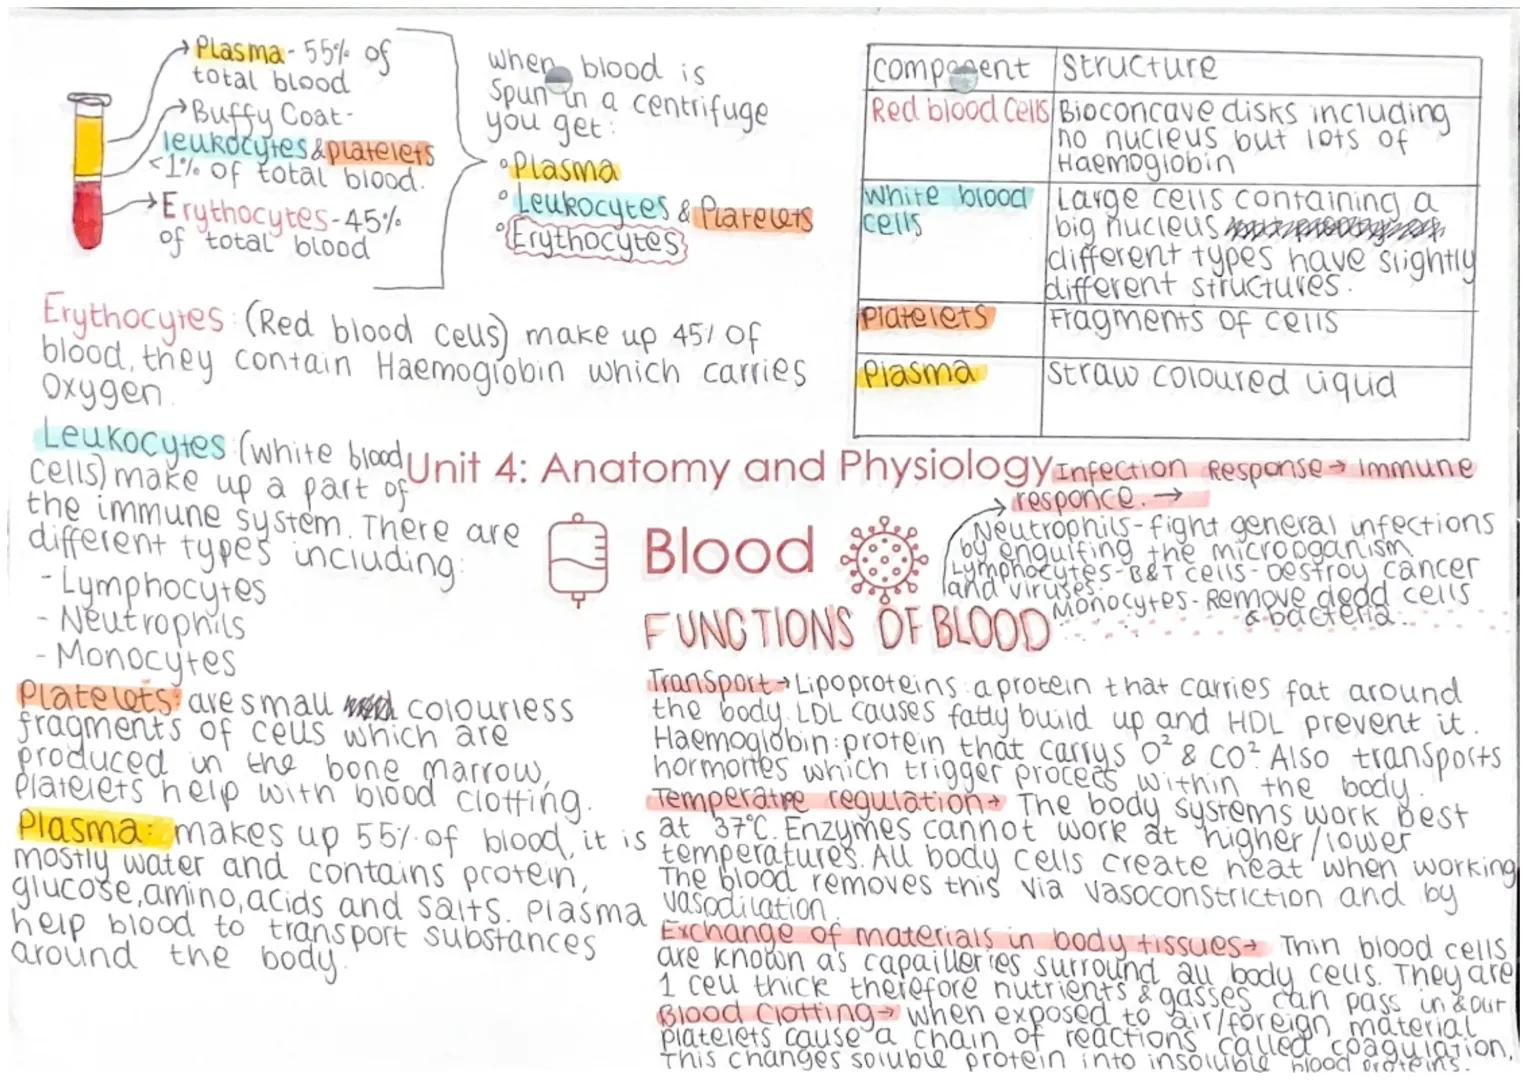 Plasma - 55% of
total blood
Buffy Coat-
leukocytes & platelets
<1% of total blood.
Erythocytes - 45%
of total blood
when blood is
Spun in a centrifuge
you get:
Plasma
Leukocytes & Platelets
Erythocytes
component structure
Red blood cells Bioconcave disks including
no nucleus but lots of
Haemoglobin
White blood
cells
Large cells containing a
big nucleus
different types have slightly
different structures.
Platelets Fragments of cells
Plasma Straw coloured liquid
Erythocytes: (Red blood cells) make up 45% of
blood, they contain Haemoglobin which carries
Oxygen.
Leukocytes: (white blood
cells) make up a part of
the immune system. There are
different types including:
- Lymphocytes
- Neutrophils
- Monocytes
Platelets: are small colourless
fragments of cells which are
produced in the bone marrow,
Platelets help with blood clotting.
Plasma: makes up 55% of blood, it is
mostly water and contains protein,
glucose, amino, acids and salts. Plasma
help blood to transport substances
around the body.
Unit 4: Anatomy and Physiology
Blood
Infection Response → Immune
responce. →
Neutrophils - fight general infections
by engulfing the microoganism
Lymphocytes - B&T cells - Destroy cancer
and viruses.
Monocytes - Remove dead cells
& bacteria.
FUNCTIONS OF BLOOD
Transport → Lipoproteins: a protein that carries fat around
the body. LDL causes fatty build up and HDL prevent it.
Haemoglobin: protein that carrys O² & CO². Also transports
hormones which trigger process within the body.
Temperatre regulation → The body systems work best
at 37°C. Enzymes cannot work at higher/lower
temperatures. All body cells create heat when working
The blood removes this via vasoconstriction and by
vasodilation.
Exchange of materials in body tissues → Thin blood cells
are known as capailleries surround all body cells. They are
1 cell thick therefore nutrients & gasses can pass in & out
Blood Clotting → when exposed to air/foreign material
platelets cause a chain of reactions called coagulation,
This changes soluble protein into insoluble blood proteins.